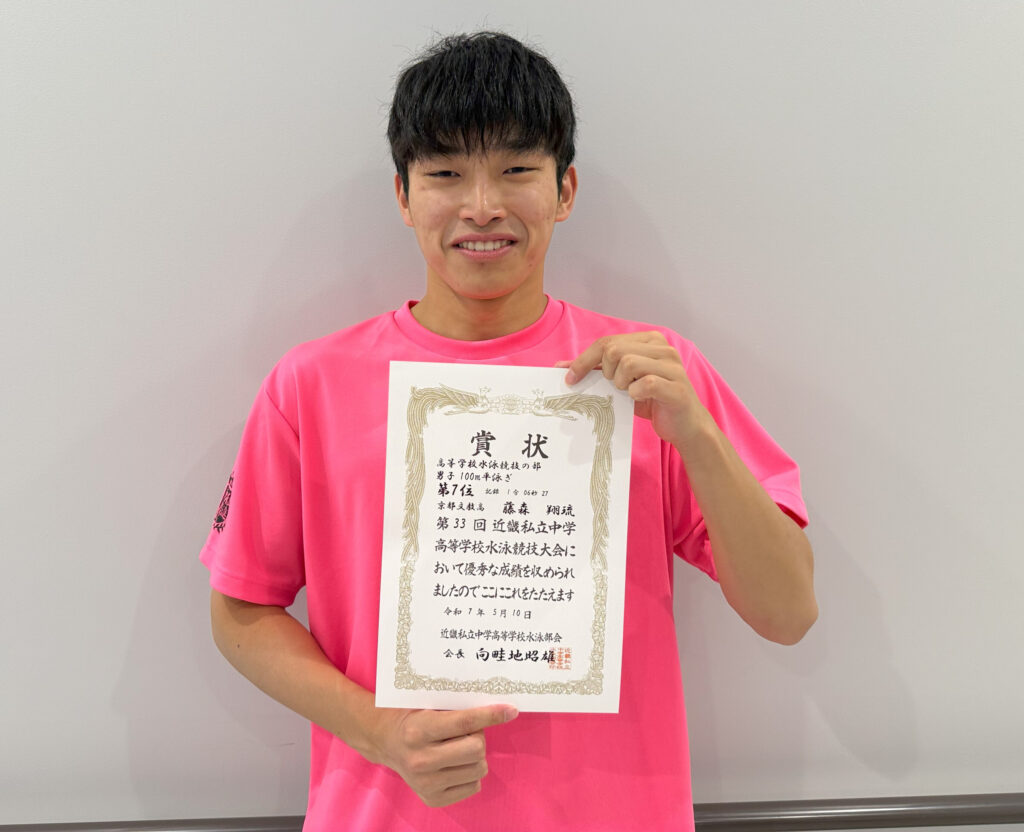 賞状
高等学校水泳競技の部
男子 100m平泳ぎ
第7位 記録 1分 06秒 27
京都文教高 藤森 翔琉
第33回近畿私立中学
高等学校水泳競技大会に
おいて優秀な成績を収められ
ましたのでここにこれをたたえます
令和7年5月10日
近畿私立中学高等学校水泳部会
会長 向畦地昭雄